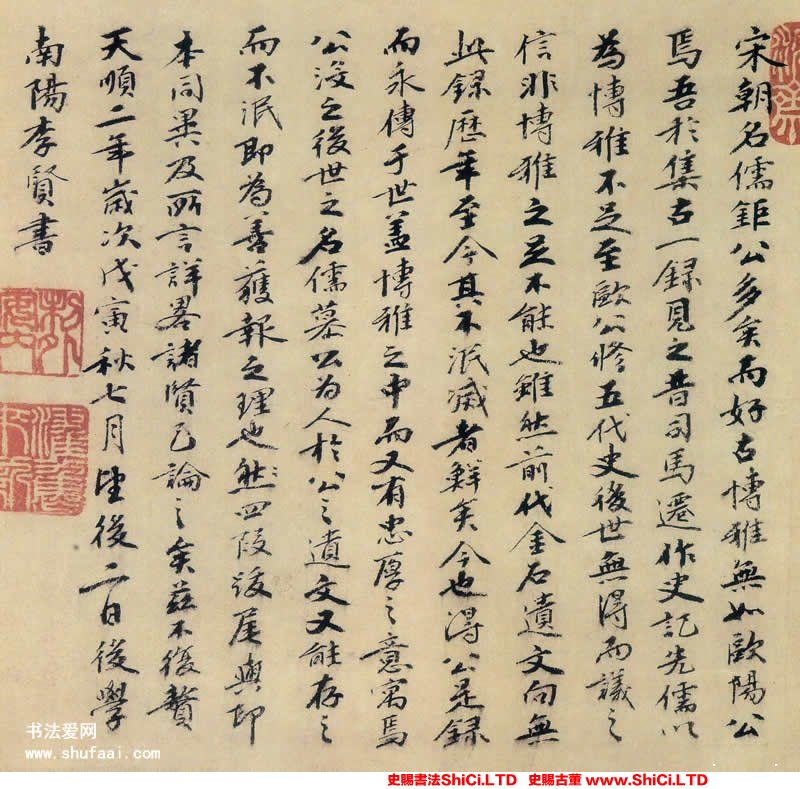 宋朝名儒鉅公多矣而好古博雅無如歐陽公
焉吾於集古一録見之昔司馬遷作史記先儒以
為博雅不足至歐公修五代史後世無得而議之
信非博雅之足不能也雖然前代金石遺文向無
此錄歷年至今其不泯滅者鮮矣今也得公是録
而永傳于世蓋博雅之中而又有忠厚之意寓焉
公沒之後世之名儒慕公為人於公之遺文又能存之
而不泯即為善獲報之理也然四段後尾與印
本同異及所言詳畧諸賢已論之矣茲不復贅
天順二年歲次戊寅秋七月望後二日後學
南陽李賢書
书法爱网
www.shufaai.com
史賜書法ShiCi.LTD 史賜古董 www.ShiCi.LTD